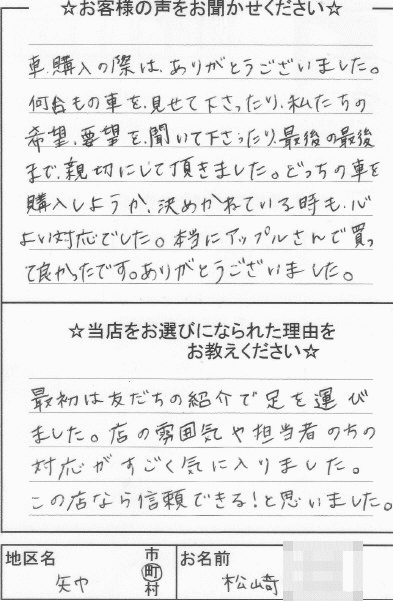 ☆お客様の声をお聞かせください☆
車購入の際は、ありがとうございました。
何台もの車を、見せて下さったり、私たちの
希望、要望を、聞いて下さったり、最後の最後
まで、親切にして頂きました。どっちの車を
購入しようか、決めかねている時も、心
よい対応でした。本当にアップルさんで買っ
て良かったです。ありがとうございました。
☆当店をお選びになられた理由を
お教えください☆
最初は友だちの紹介で足を運び
ました。店の雰囲気や担当者のちの
対応がすごく気に入りました。
この店なら信頼できる!と思いました。
地区名
矢巾
市
町
村
お名前
松﨑